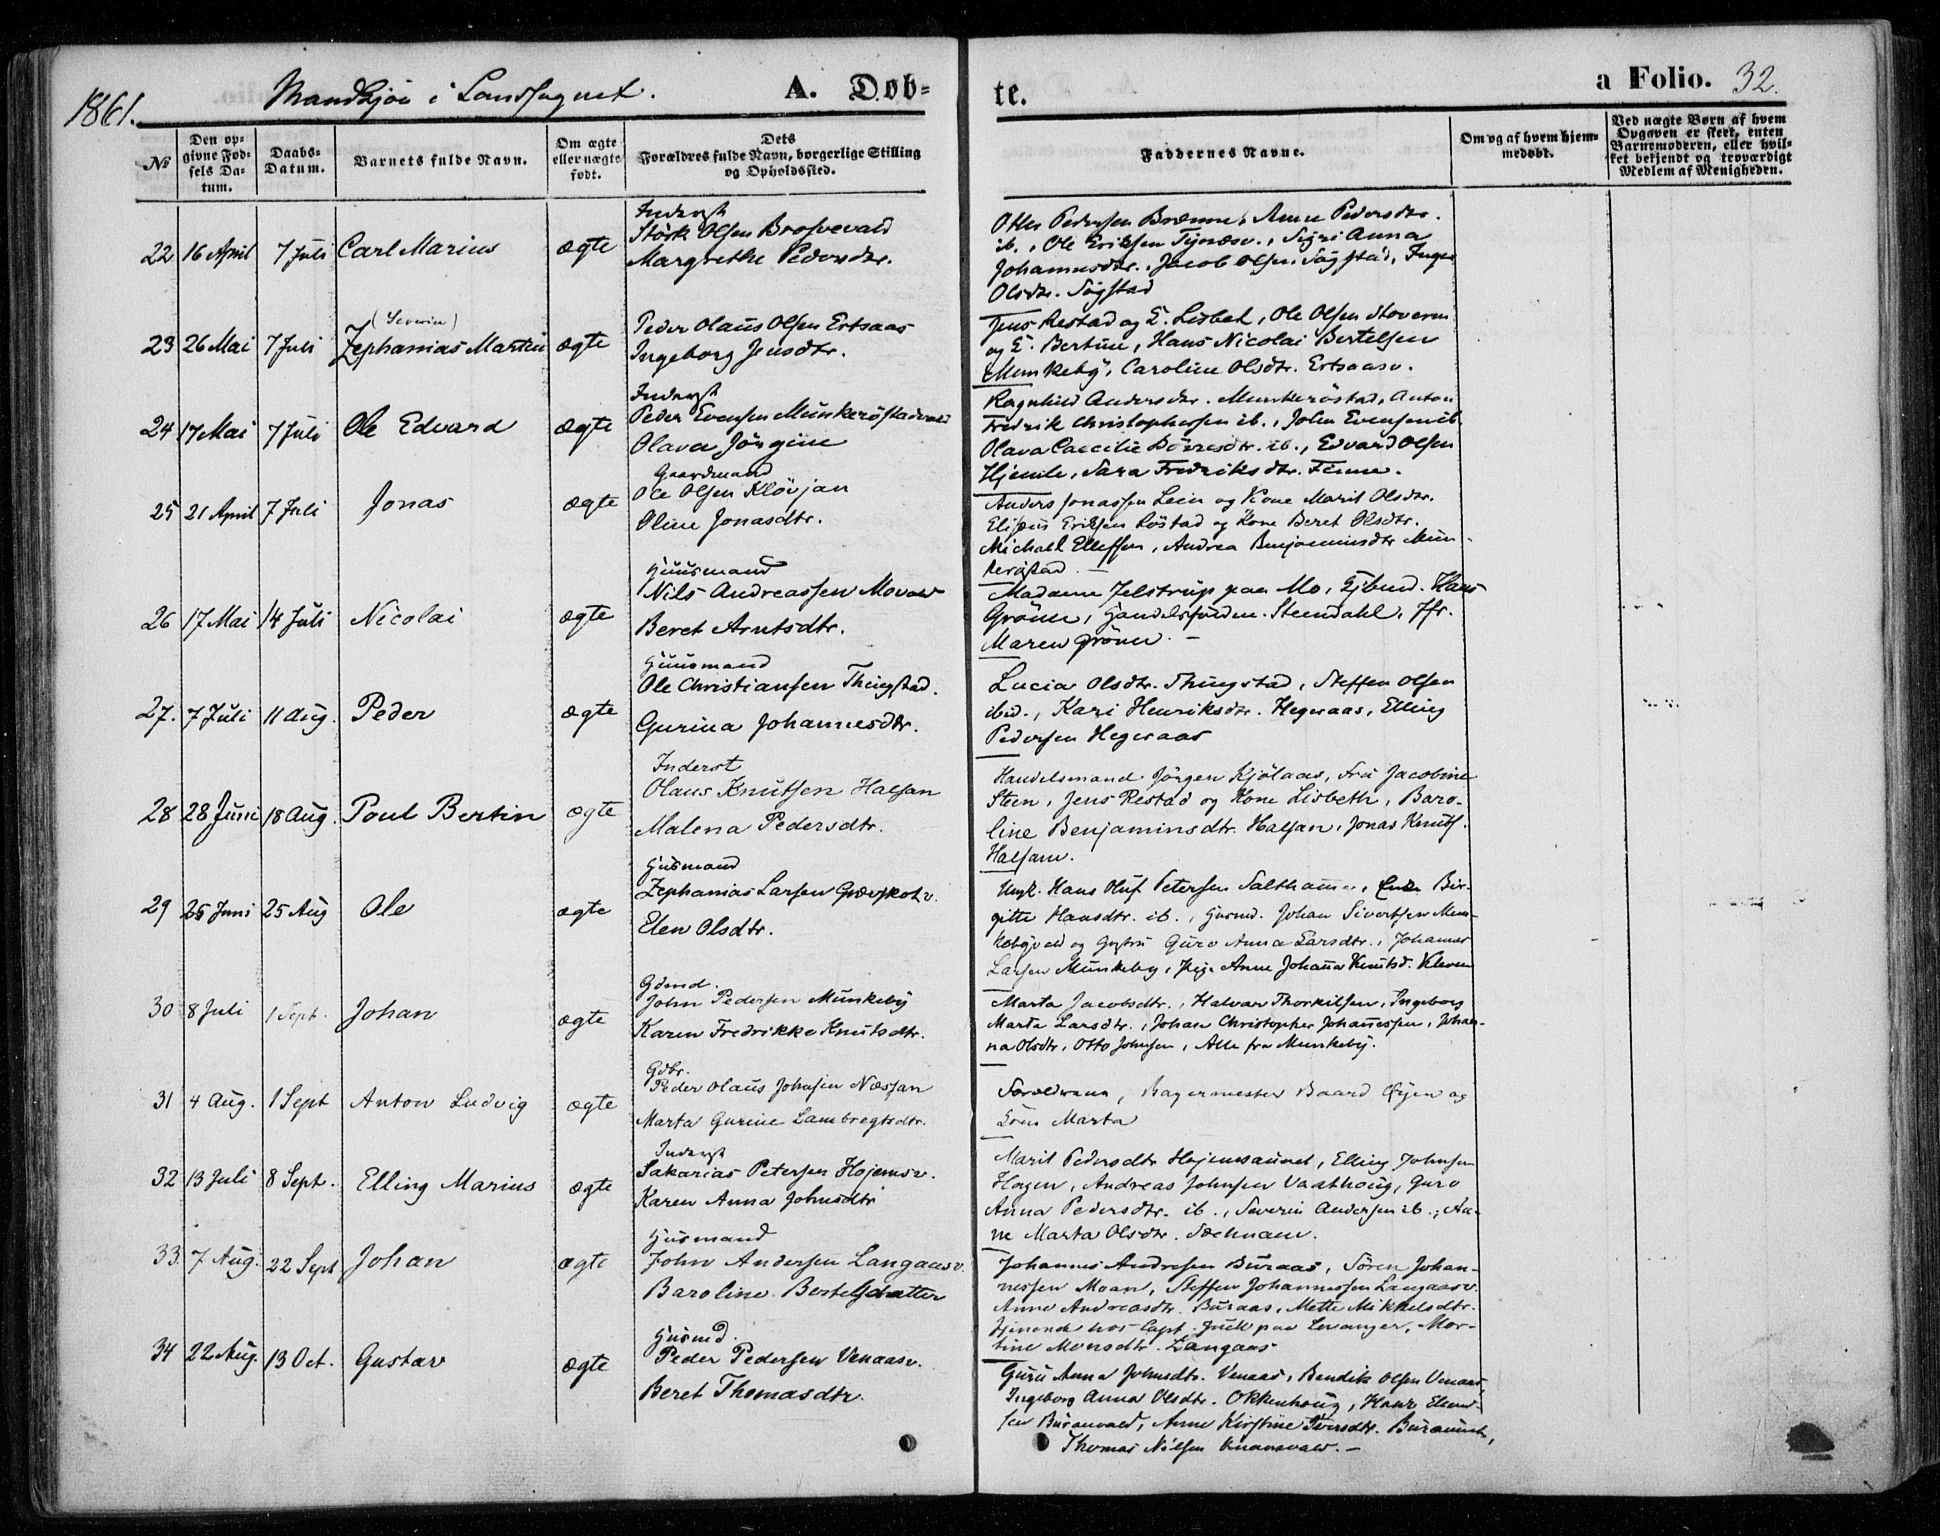 1861. Mandkjøn i Landsognet. A. Døb-
№
Den op-
givne Fød-
sels Da-
tum.
Daabs-
Datum.
Barnets fulde Navn.
Om ægte
eller uægte
født.
Dets
Forældres fulde Navn, borgerlige Stilling
og Opholdssted.
22 16 April 7 Juli Carl Marius ægte
Inderst
Störk Olsen
Margrethe Pedersdtr.
23 26 Mai 7 Juli (Severin) Zephanias Martin ægte
Peder Olaus Olsen Ertsaas
Ingeborg Jensdtr.
24 17 Mai 7 Juli Ole Edvard ægte
Inderst
Peder Evensen Munkeröstadvald
Olava Jörgine
25 21 April 7 Juli Jonas ægte
Gaardmand
Ole Olsen Klövjan
Oline Jonasdtr.
26 17 Mai 14 Juli Nicolai ægte
Huusmand
Nils Andreassen Movald
Beret Arntsdtr.
27. 7 Juli 11 Aug. Peder ægte
Huusmand
Ole Christiansen Thingstad.
Gurina Johannesdtr.
28 28 Juni 18 Aug. Poul Bertin ægte
Inderst
Olaus Knutsen Halsan
Malena Pedersdtr.
29 25 Juni 25 Aug Ole ægte
Husmand
Zephanias Larsen
Elen Olsdtr.
30 8 Juli 1 Sept. Johan ægte
Gdmd.
John Pedersen Munkeby
Karen Fredrikke Knutsdtr.
31 4 Aug. 1 Sept Anton Ludvig ægte
Gdbr.
Peder Olaus Johnsen Næssan
Marta Gurine Lambregtsdtr.
32 13 Juli 8 Sept. Elling Marius ægte
Inderst
Sakarias Petersen Hojemsv.
Karen Anna Johnsdtr
33. 7 Aug. 22 Sept Johan ægte
Husmand
John Andersen Langaasv.
Baroline Bertelsdatter
34 22 Aug. 13 Oct. Gustav ægte
Husmd.
Peder Pedersen Venaasv.
Beret Thomasdtr.
te. a Folio. 32.
Faddernes Navne.
Om og af hvem hjem-
medøbt.
Ved uægte Børn af hvem
Opgaven er skeet, enten
Barnemoderen, eller hvil-
ket bekjendt og troværdigt
Medlem af Menigheden.
Pedersen Anne Pedersdtr.
ib., Ole Eriksen Anna
Johannesdtr., Jacob Olsen Sögstad, Inger
Olsdtr. Sögstad
Jens Restad og E. Lisbet, Ole Olsen
og E. Bertine, Hans Nicolai Bertelsen
Munkeby, Caroline Olsdtr. Ertsaasv.
Ragnhild Andersdtr. Munkeröstad, Anton
Fredrik Christophersen ib., John Evensen ib.
Olava Caecilie ib., Edvard Olsen
Hjemle, Sara Fredriksdtr.
Anders Jonassen Lein og Kone Marit Olsdtr.
Eriksen og Kone Beret Olsdtr.
Michael Ellefsen, Andrea Benjaminsdtr Mun-
keröstad. —
Madame Jelstrup paa Mo, Hans
Grönn, Steendahl, Jfr.
Maren Grönn. —
Lucia Olsdtr. Thingstad, Steffen Olsen
ibid., Kari Henriksdtr. Hegeraas, Elling
Pedersen Hegeraas
Handelsmand Jörgen Kjölaas, Fru Jacobine
Steen, Jens Restad og Kone Lisbeth, Baro-
line Benjaminsdtr. Halsan, Jonas Knuts.
Halsan.
Ungk. Hans Oluf Petersen Bir-
gitte Hansdtr. ib., Husmd. Johan Sivertsen Mun-
kebyvald og Guro Anna Larsdtr., Johannes
Larsen Munkeby, Pige Anne Johanna Knutsd. Kleven
Marta Jacobsdtr., Halvar Thorkilsen, Ingeborg
Marta Larsdtr., Johan Christopher Johannessen, Johan-
na Olsdtr, Otto Johnsen, Alle fra Munkeby.
Forældrene, Bagermester Baard Öyen og
Marta
Marit Pedersdtr Hojemsaunet, Elling Johnsen
Hagen, Andreas Johnsen Vaathoug, Guro
Anna Pedersdtr. ib., Severin Andersen ib., An-
ne Marta Olsdtr.
Johannes Andresen Buraas, Sören Johan-
nessen Moan, Steffen Johannessen Langaasv.
Anne Andreasdtr. Buraas, Mette Mikkelsdtr.
tjenende hos Capt. Juell paa Levanger, Mor-
tine Monsdtr. Langaas
Guru Anna Johnsdtr. Venaas, Bendik Olsen Venaas,
Ingeborg Anna Olsdtr. Okkenhoug, Hans
sen Buranvald, Anne Kirstine Iversdtr.
Thomas Nilsen —